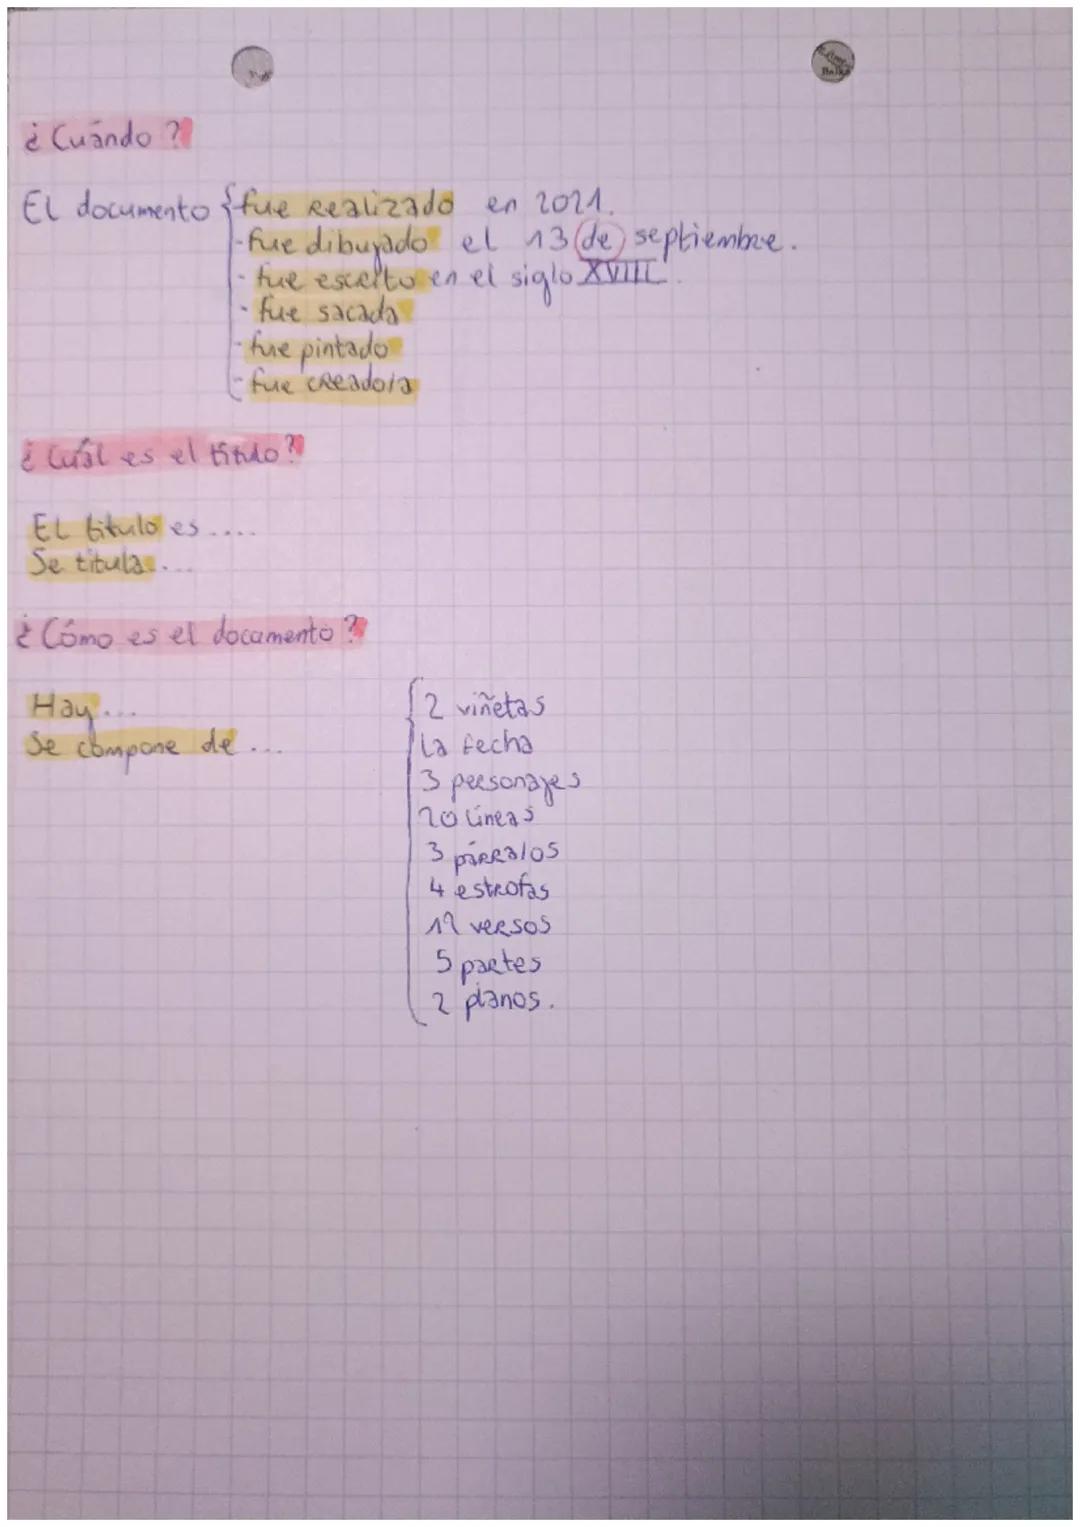 ¿Cuándo?
El documento { fue realizado en 2021.
- fue dibujado el 13 de septiembre.
- fue escrito en el siglo XVIII.
- fue sacada
- fue pintado
- fue creado/a
¿Cuál es el título?
El titulo es....
Se titula....
¿Cómo es el documento?
Hay...
Se compone de ...
2 viñetas
La fecha
3 personajes
20 líneas
3 párrafos
4 estrofas
12 versos
5 partes
2 planos.